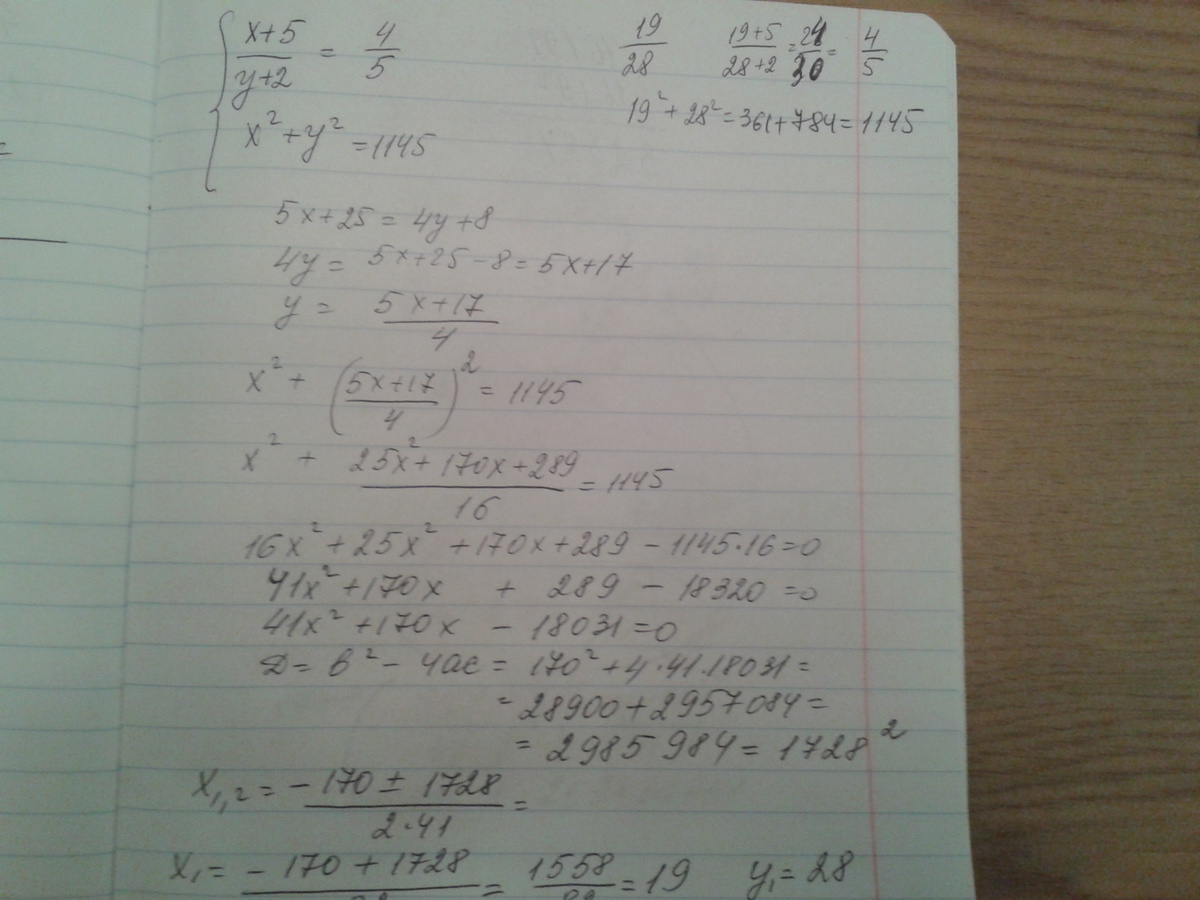 (x+5)/(y+2) = 4/5
x² + y² = 1145
19/28
(19+5)/(28+2) = 24/30 = 4/5
19² + 28² = 361 + 784 = 1145
5x + 25 = 4y + 8
4y = 5x + 25 - 8 = 5x + 17
y = (5x + 17)/4
x² + ((5x + 17)/4)² = 1145
x² + (25x² + 170x + 289)/16 = 1145
16x² + 25x² + 170x + 289 - 1145·16 = 0
41x² + 170x + 289 - 18320 = 0
41x² + 170x - 18031 = 0
D = b² - 4ac = 170² + 4·41·18031 =
= 28900 + 2957084 =
= 2985984 = 1728²
x₁,₂ = (-170 ± 1728)/(2·41) =
x₁ = (-170 + 1728)/82 = 1558/82 = 19 y₁ = 28